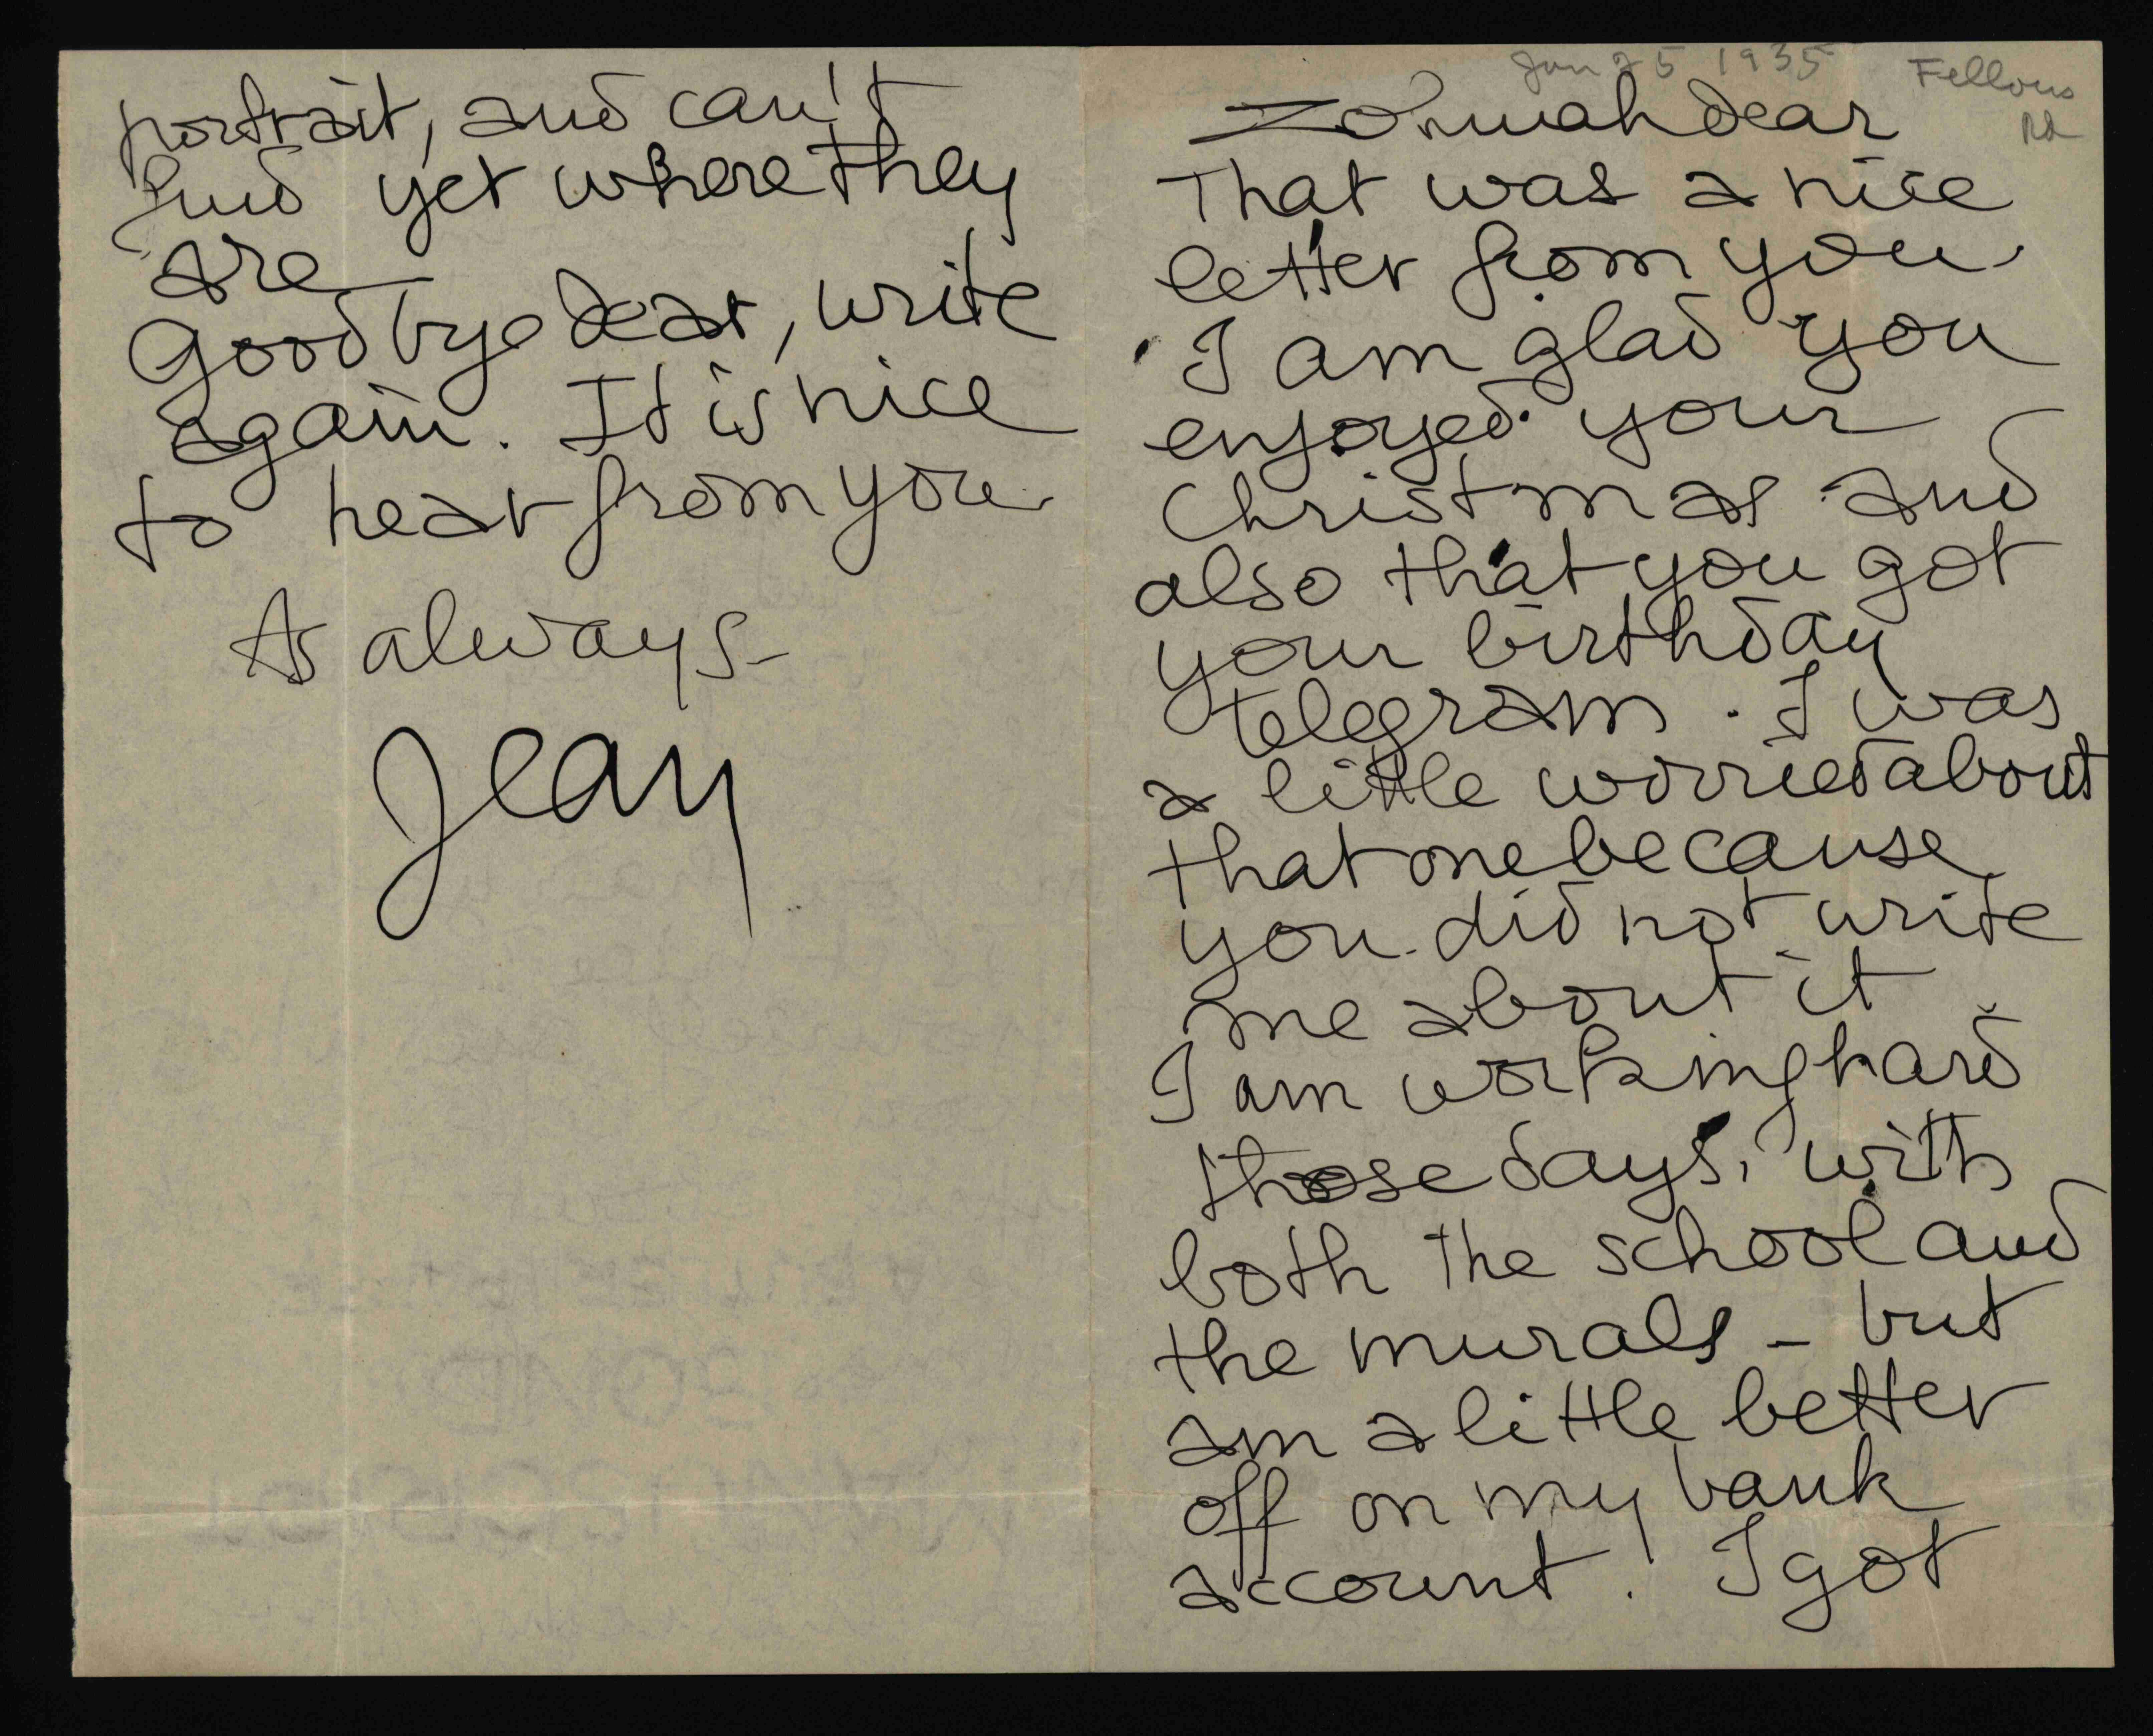 portrait, and can't
find yet where they
are
Goodbye dear, write
again. It is nice
to hear from you.
As always-
Jean
Jan 25 1935
Fellows
Rd
Zohmah dear
That was a nice
letter from you.
I am glad you
enjoyed your
Christmas and
also that you got
your birthday
telegram. I was
a little worried about
that one because
you did not write
me about it
I am working hard
those days, with
both the school and
the murals - but
am a little better
off on my bank
account! I got